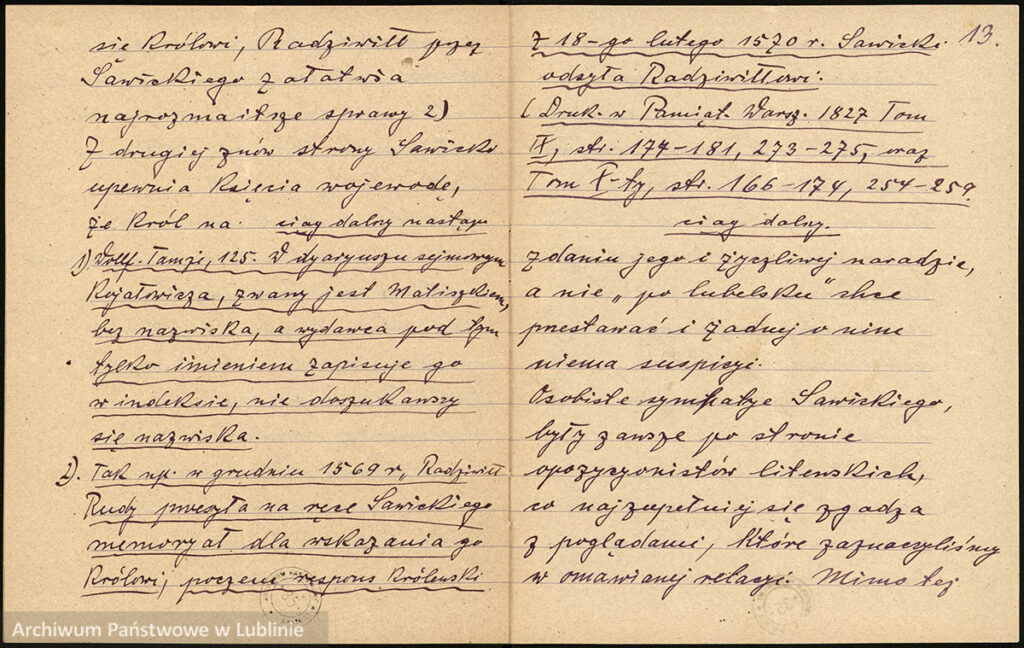 się Królowi, Radziwiłł przez
Sawickiego załatwia
najrozmaitsze sprawy 2)
Z drugiej znów strony Sawicki
upewnia Księcia wojewodę,
że Król na ciąg dalszy nastąpi
1) Wolff. Tamże, 125. W dyaryuszu sejmowym
Kojałowicza, zwany jest Matiszkiem,
bez nazwiska, a wydawca pod tym
tylko imieniem zapisuje go
w indeksie, nie doszukawszy
się nazwiska.
2). Tak np. w grudniu 1569 r., Radziwiłł
Rudy przesyła na ręce Sawickiego
memoryał dla wskazania go
Królowi, poczem respons Królewski
13.
z 18-go lutego 1570 r. Sawicki
odsyła Radziwiłłowi.
(Druk. w Pamiąt. Warsz. 1827 Tom
IX, str. 174-181, 273-275, oraz
Tom X-ty, str. 166-174, 254-259.
ciąg dalszy.
zdaniu jego i życzliwej naradzie,
a nie "po lubelsku" chce
przestawać i żadnej o nim
niema suspicyi.
Osobiste sympatye Sawickiego,
były zawsze po stronie
opozycyonistów litewskich,
co najzupełniej się zgadza
z poglądami, które zaznaczyliśmy
w omawianej relacyi. Mimo tej
Archiwum Państwowe w Lublinie